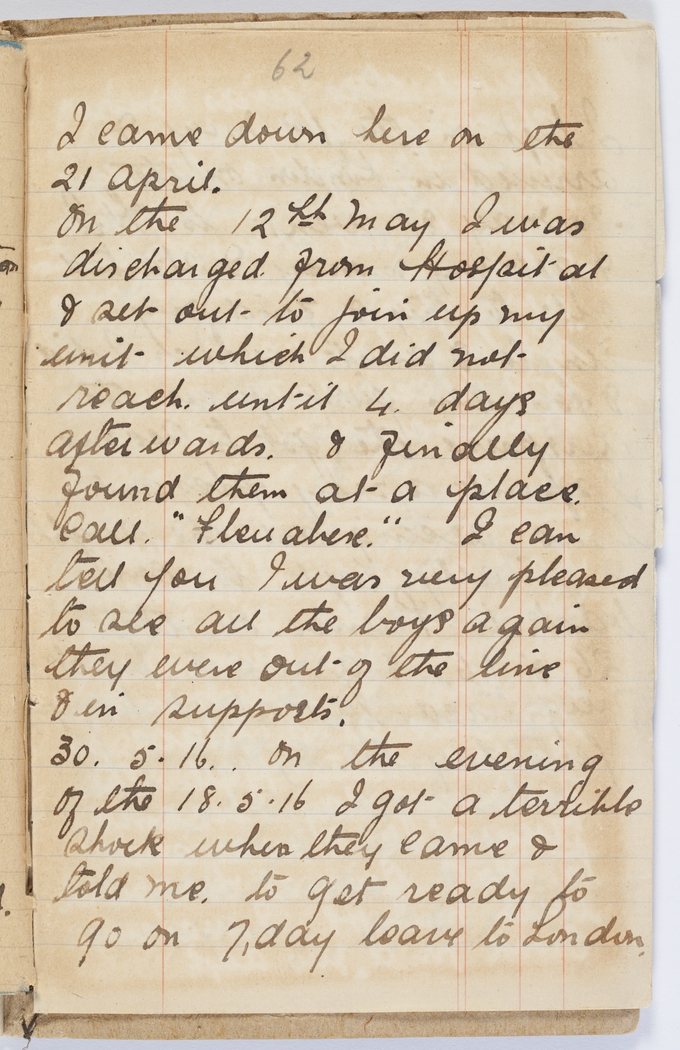 62
I came down here on the
21 April.
On the 12th May I was
discharged from Hospital
& set out to join up my
unit which I did not
reach. until 4. days
afterwards. & finally
found them at a place.
Call. "Fleuabex." I can
tell you I was very pleased
to see all the boys again
they were out of the line
& in supports.
30. 5. 16. . On the evening
of the 18. 5. 16 I got a terrible
shock when they came &
told me. to get ready to
go on 7, day leave to London.